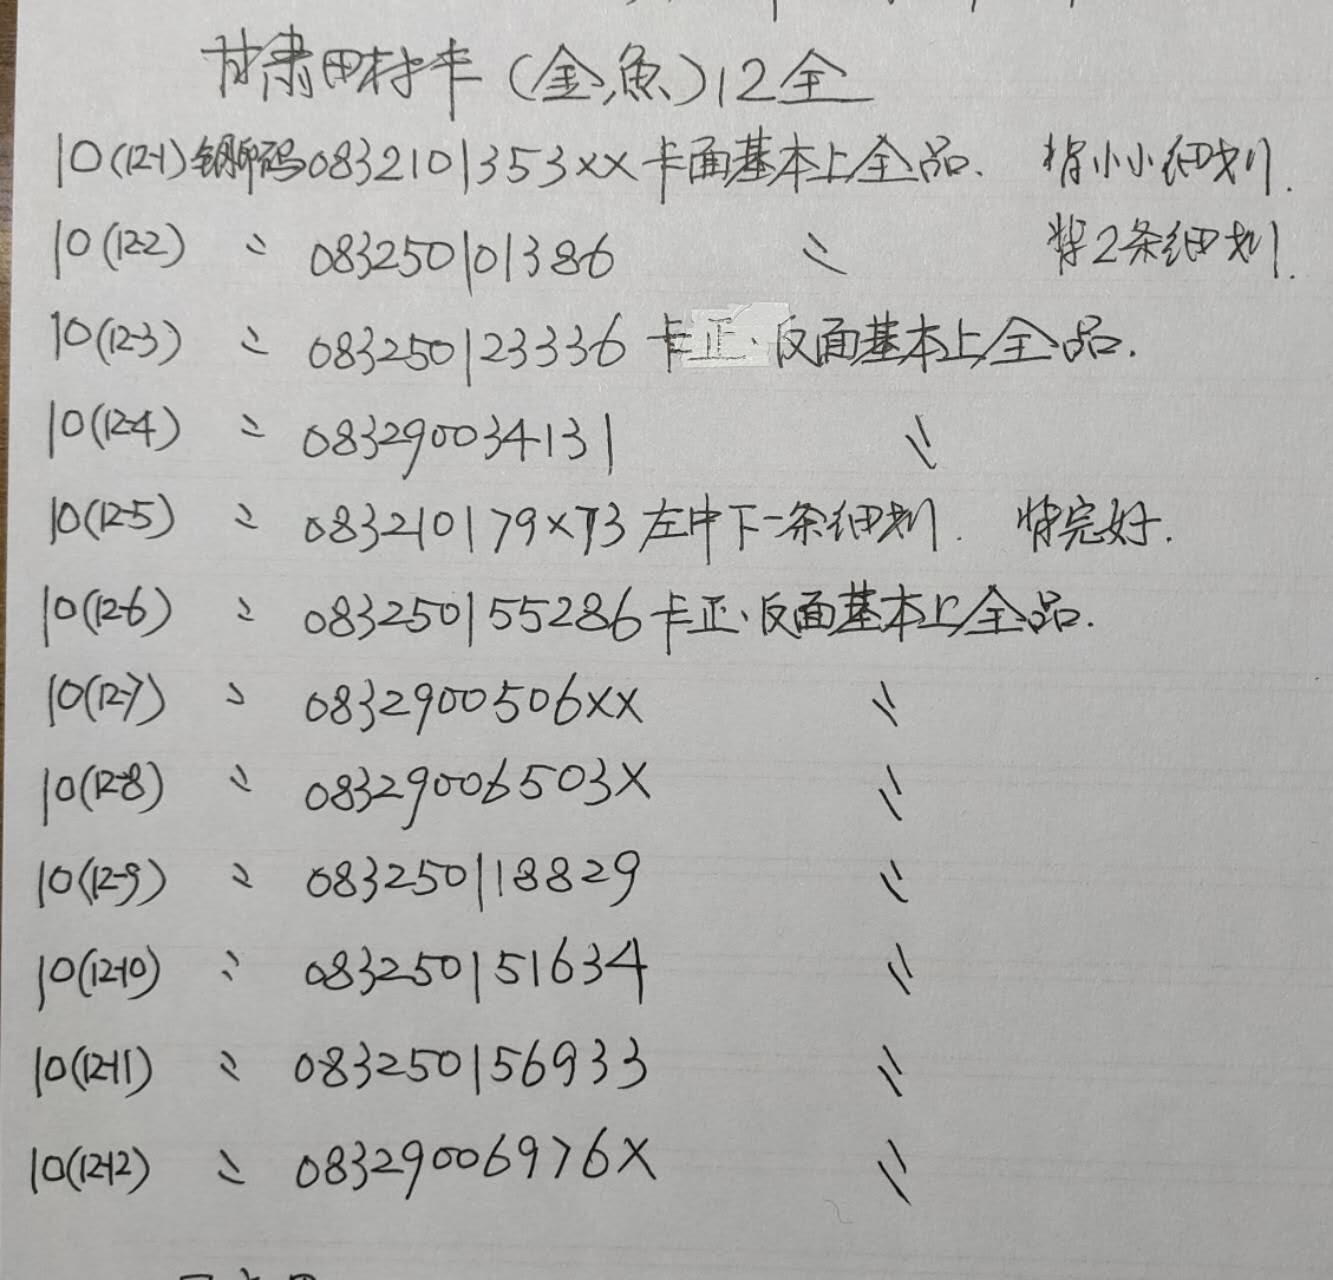 甘肃田村卡(金鱼)12全
10(12-1)钢印码0832101353XX 卡面基本上全品. 背小小细划.
10(12-2) 〃 083250101386 〃 背2条细划.
10(12-3) 〃 083250123336 卡正、反面基本上全品.
10(12-4) 〃 083290034131 〃
10(12-5) 〃 083210179X73 左中下一条细划. 背完好.
10(12-6) 〃 083250155286 卡正、反面基本上全品.
10(12-7) 〃 0832900506XX 〃
10(12-8) 〃 08329006503X 〃
10(12-9) 〃 083250118829 〃
10(12-10) 〃 083250151634 〃
10(12-11) 〃 083250156933 〃
10(12-12) 〃 08329006976X 〃